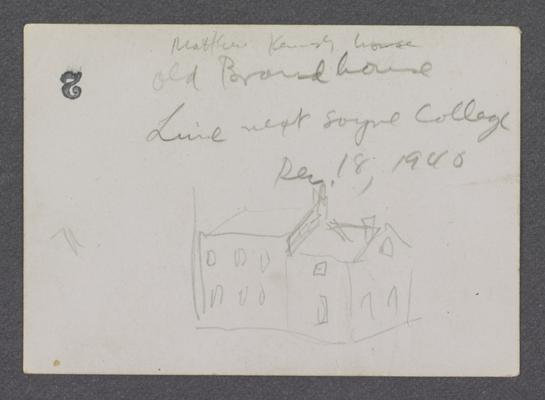 Matthew Kennedy house
old Brand house
Lime next Sayre College
Dec. 18, 1940
2